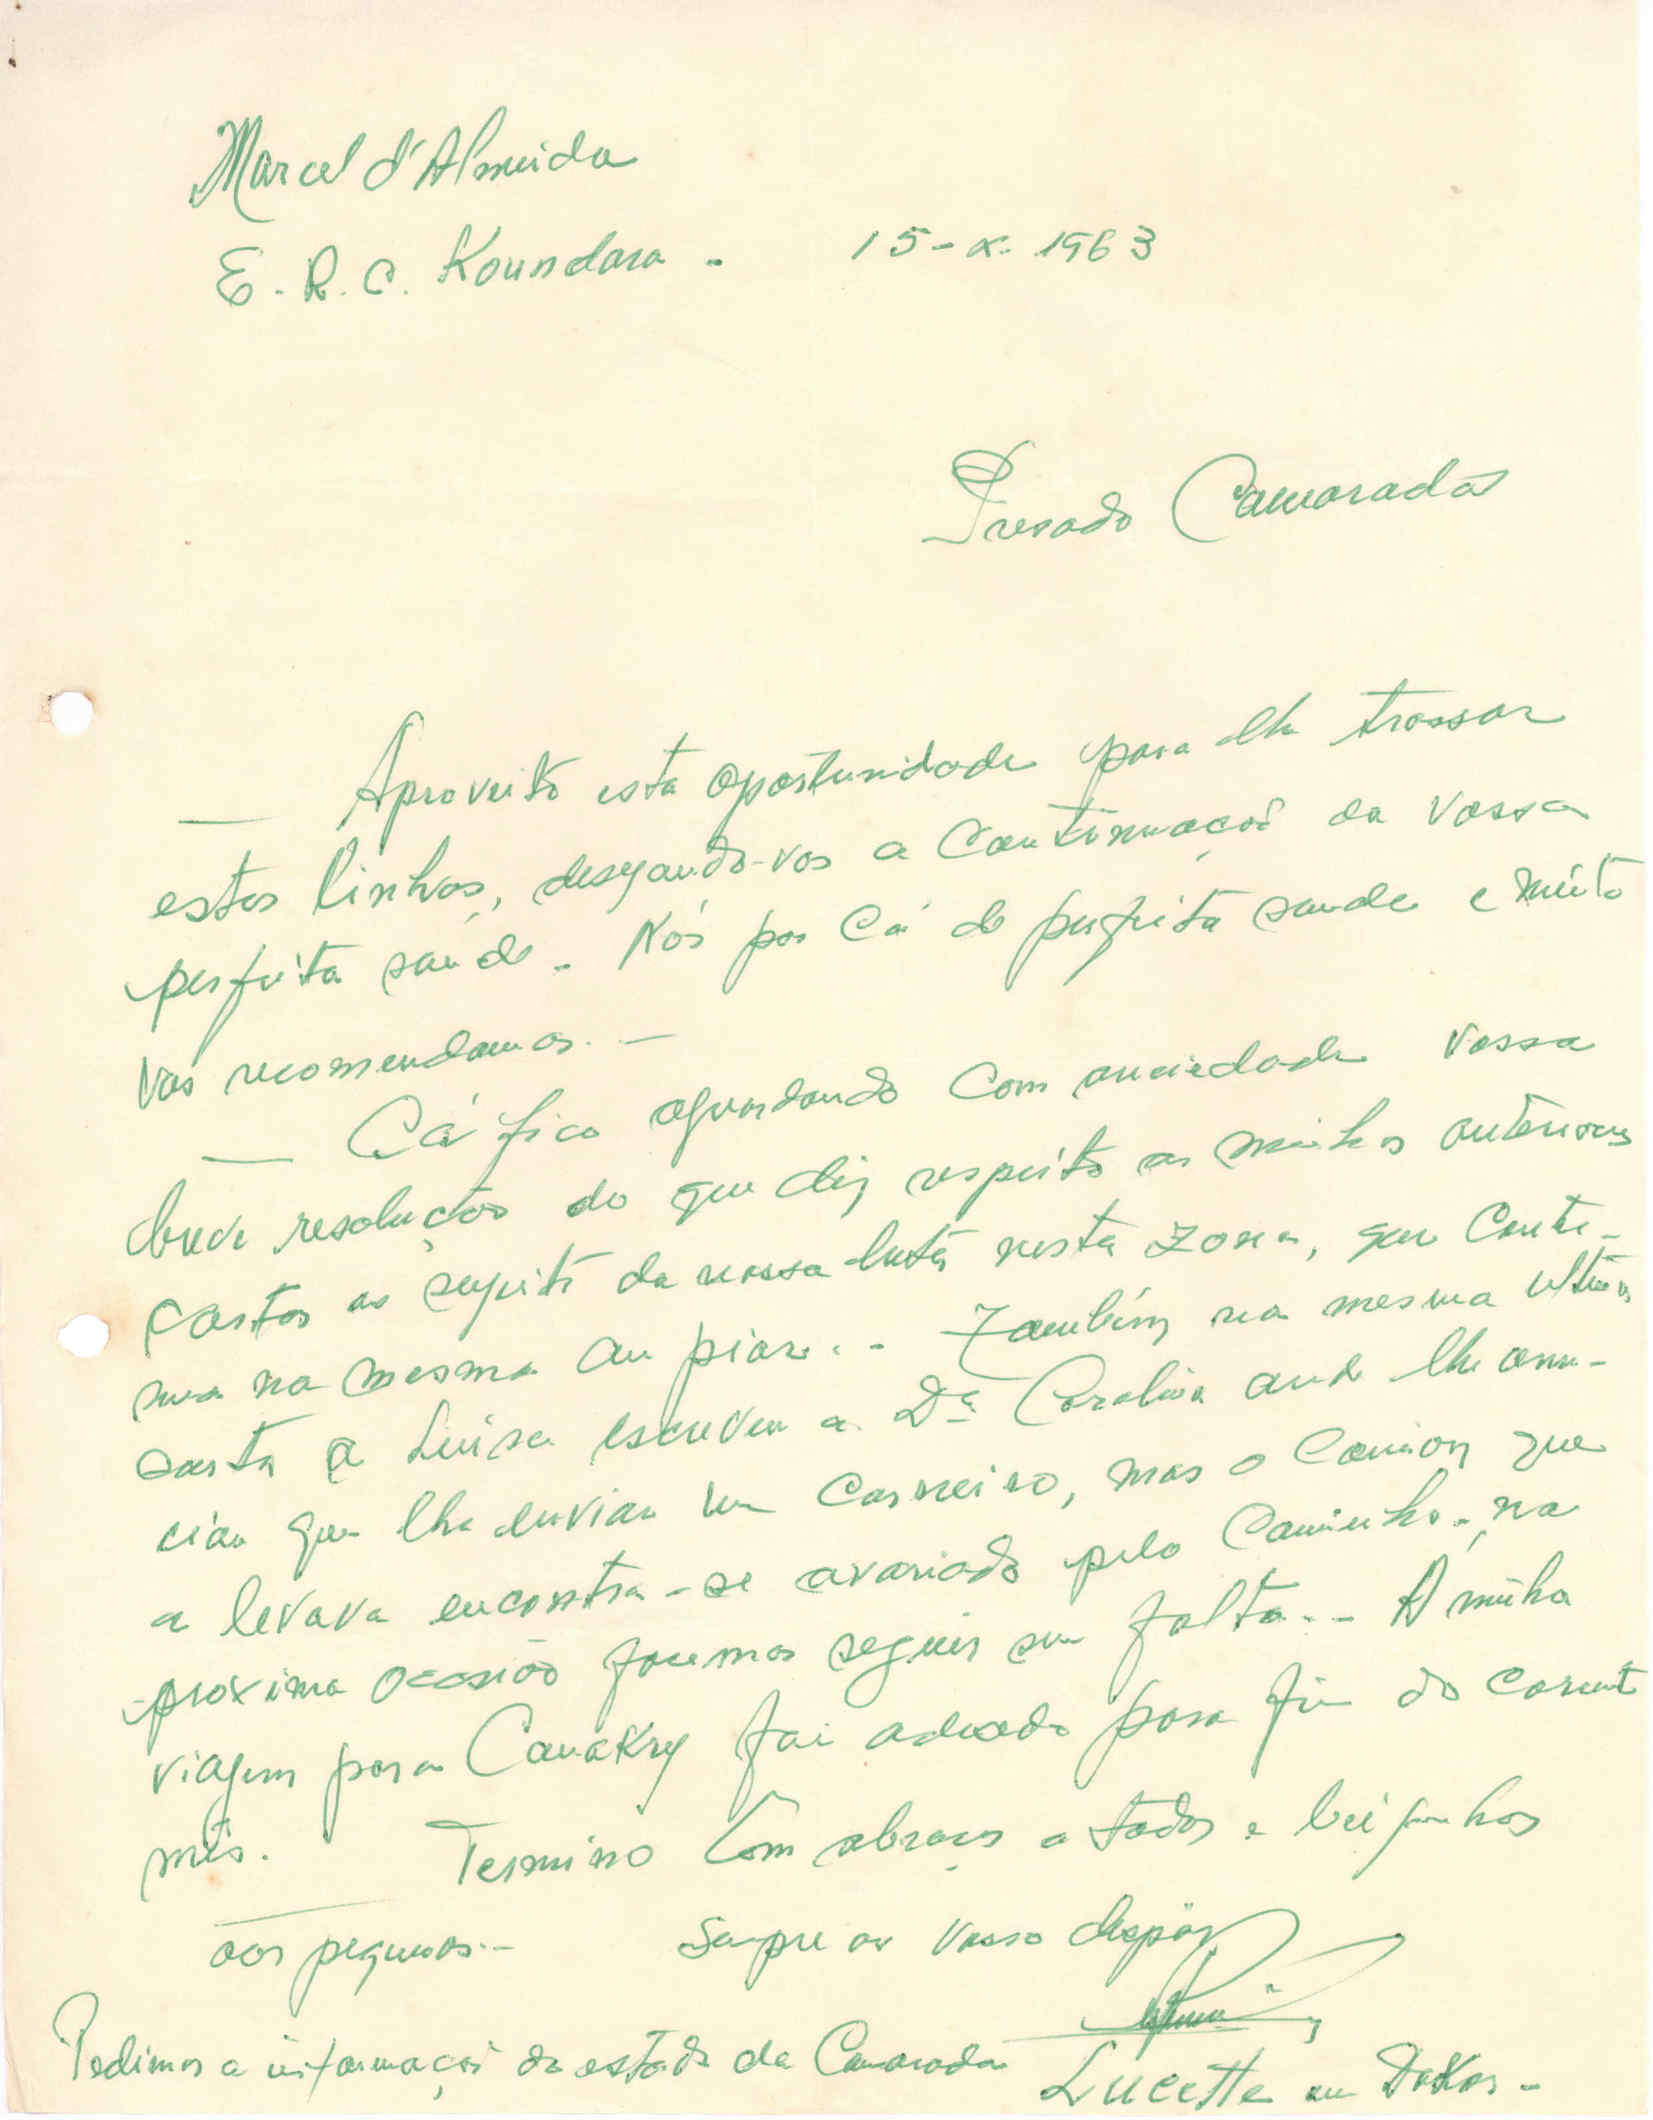 Marcel d'Almeida
E. R. C. Koundara - 15-X-1963
Presado Camaradas
— Aproveito esta oportunidade para lhe trassar
estas linhas, desejando-vos a continuaçaõ da vossa
perfeita saúde. Nós por cá de perfeita saude e muito
vos recomendamos. —
— Cá fico aguardando com anciedade vossa
breve resolução do que diz respeito as minhas anteriores
cartas ao respeito da nossa luta nesta zona, que conti-
nua na mesma ou pior.. - Também na mesma ultima
carta a Luisa escreveu a Dª Carolina onde lhe anun-
ciou que lhe enviou um carneiro, mas o camion que
a levava encontra-se avariado pelo caminho, na
próxima ocasião faremos seguir sem falta.. - A minha
viagem para Conakry foi adeado para fim do corrente
mês. Termino com abraços a todos e beijinhos
aos pequenos.- Sempre ao vosso dispôr
Pedimos a informaçaõ do estado da Camarada
Lucette em Dakar -